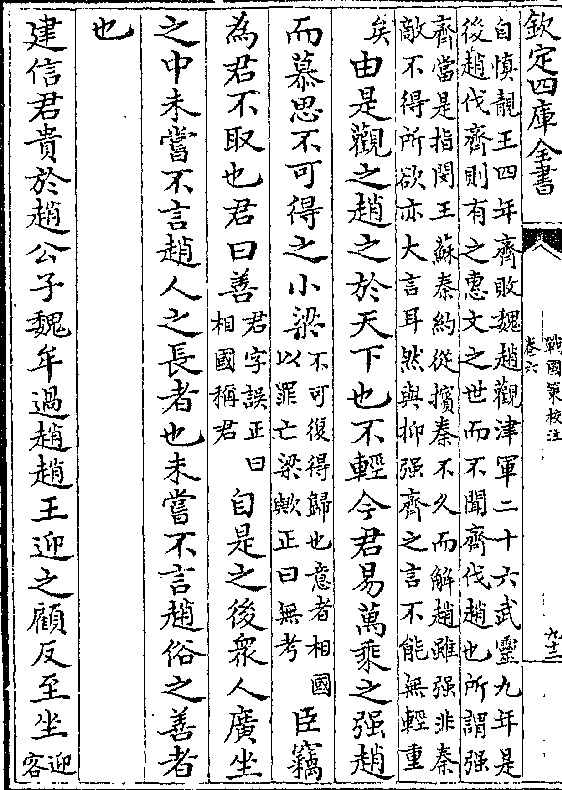 欽定四庫全書
戰國策校注
卷六
九十三
自慎靚王四年齊敗魏趙觀津軍二十六武靈九年是
後趙伐齊則有之惠文之世而不聞齊伐趙也所謂强
齊當是指閔王蘇秦約從擯秦不久而解趙雖强非秦
敵不得所欲亦大言耳然與抑强齊之言不能無輕重
矣
由是觀之趙之於天下也不輕今君易萬乗之强趙
而慕思不可得之小梁不可復得歸也意者相國以罪亡梁歟正曰無考臣竊
為君不取也君曰善君字誤正曰相國稱君自是之後衆人廣坐
之中未嘗不言趙人之長者也未嘗不言趙俗之善者
也
建信君貴於趙公子魏牟過趙趙王迎之顧反至坐迎客